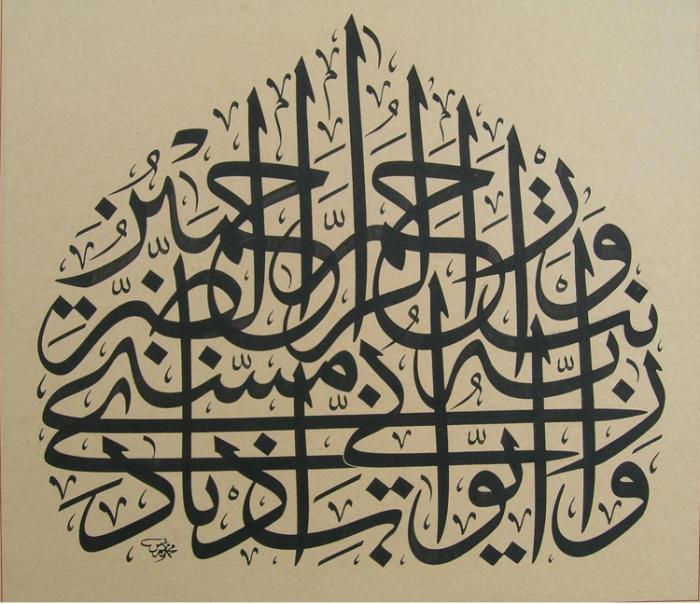 وَأَيُّوبَ إِذْ نَادَى
رَبَّهُ أَنِّي مَسَّنِيَ الضُّرُّ
وَأَنْتَ أَرْحَمُ الرَّاحِمِينَ